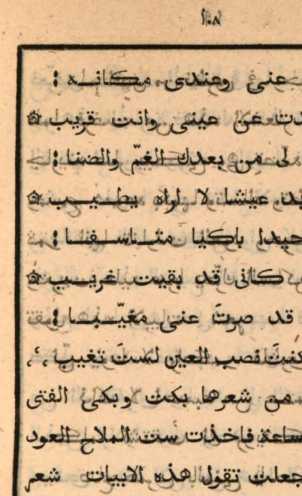 ١٠٨
عنى وعندى مكانه ؛
عن عينى وانت قريب ۞
لى من بعدك الغمّ والضنا ؛
عيشا لا اراه يطيب ۞
باكيا متاسفا ؛
كانى قد بقيت غريب ۞
قد صرتَ عنى مغيّبا ؛
كنتَ نصب العين لستَ تغيب
من شعرها بكت وبكى الفتى
ساعة فاخذت ست الملاح العود
جعلت تقول هذه الابيات شعر